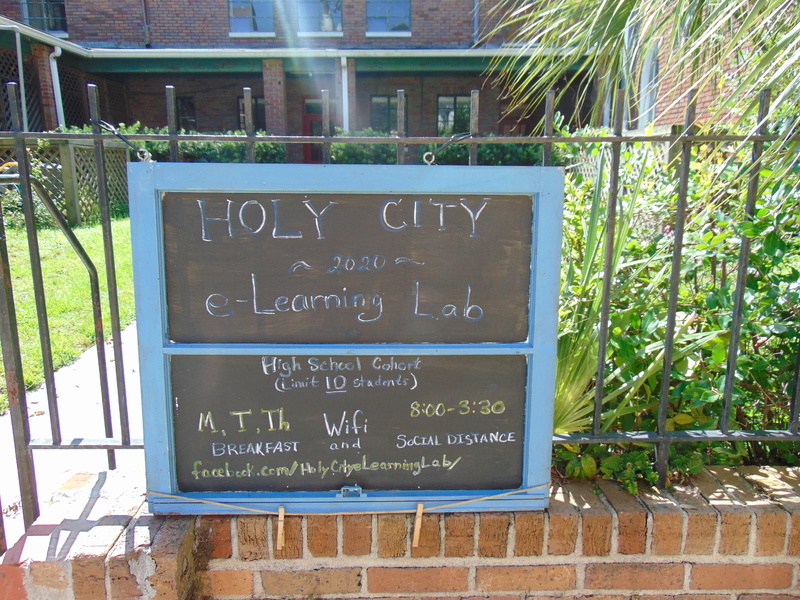 HOLY CITY
~ 2020 ~
e-Learning Lab
High School Cohort
(Limit 10 students)
M, T, Th Wifi 8:00-3:30
BREAKFAST and SOCIAL DISTANCE
facebook.com/HolyCityeLearningLab/